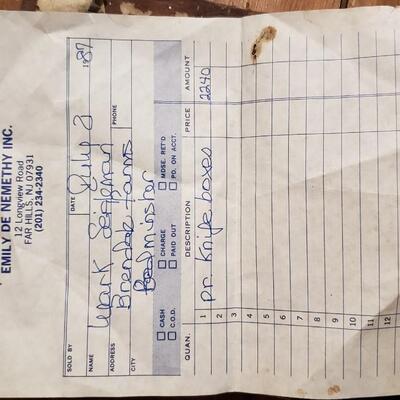 EMILY DE NEMETHY INC.
12 Longview Road
FAR HILLS, NJ 07931
(201) 234-2340
DATE July 2 1987
SOLD BY
NAME Mark
ADDRESS Brendale farms PHONE
CITY Bedminster
☐ CASH ☐ CHARGE ☐ MDSE. RET'D
☐ C.O.D. ☐ PAID OUT ☐ PD. ON ACCT.
QUAN. DESCRIPTION PRICE AMOUNT
1 pr. Knife boxes 2240
2
3
4
5
6
7
8
9
10
11
12